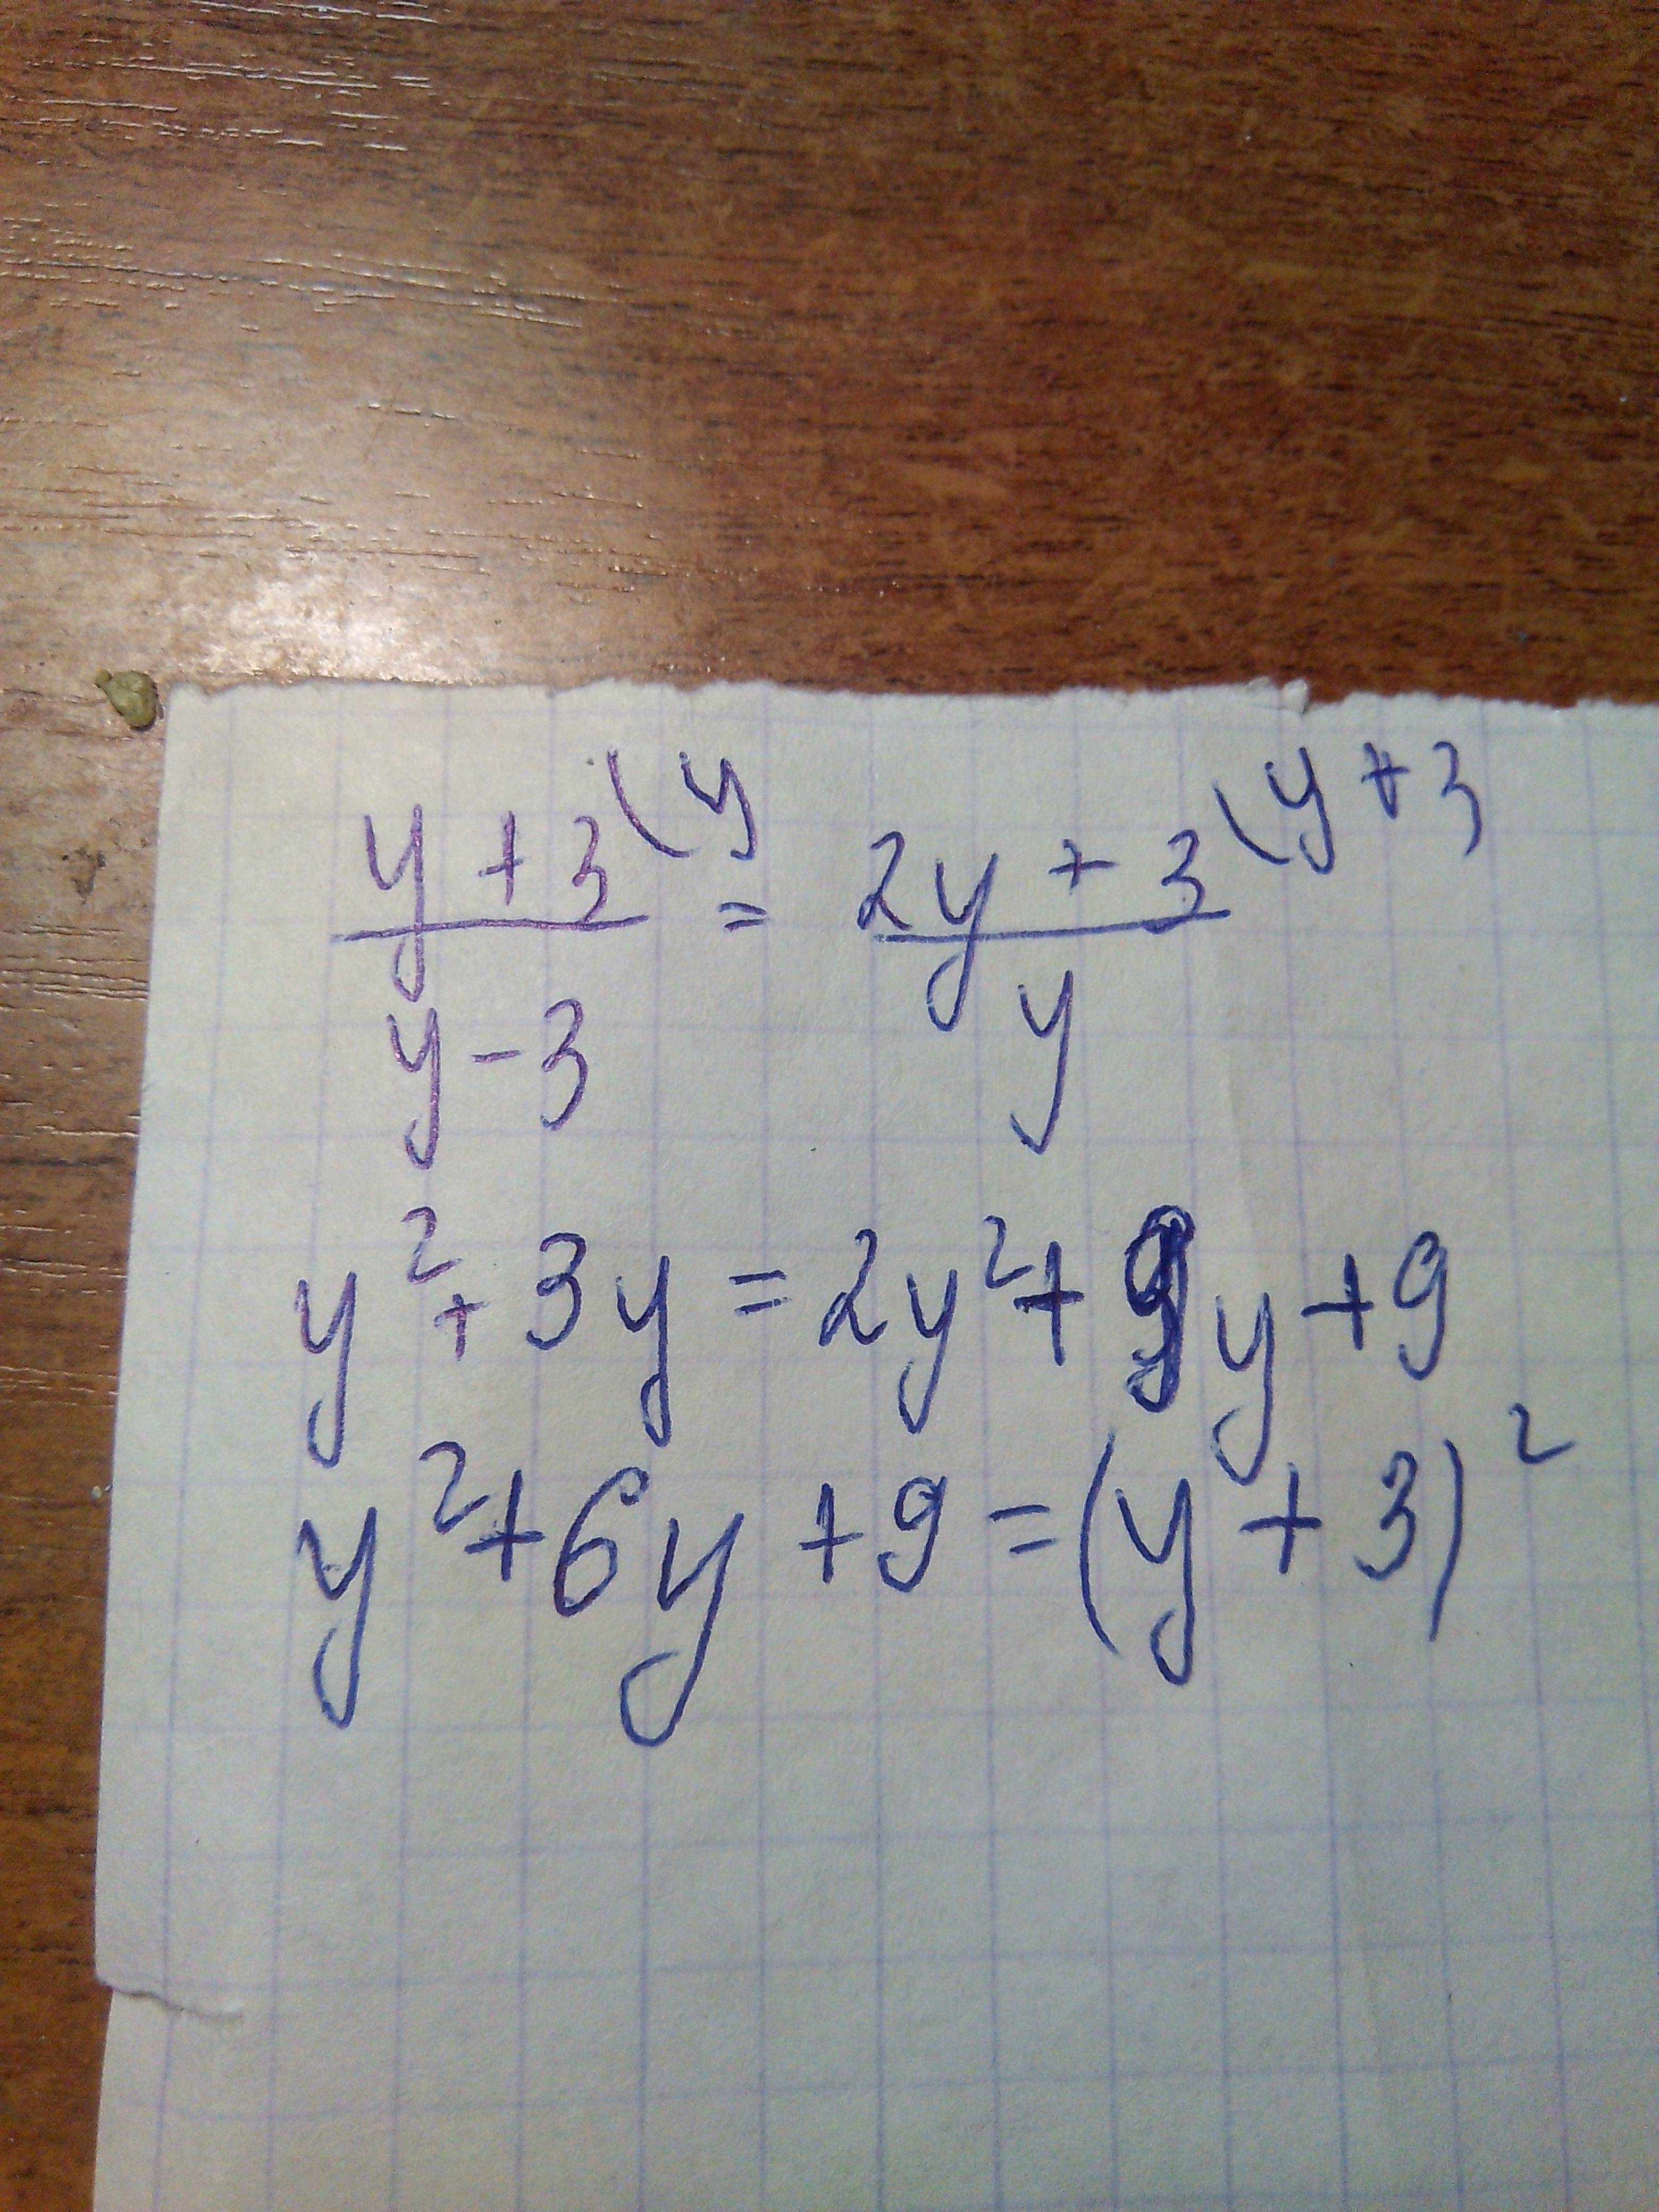 y + 3 (y = 2y + 3 (y + 3
y - 3 y
y² + 3y = 2y² + 9y + 9
y² + 6y + 9 = (y + 3)²